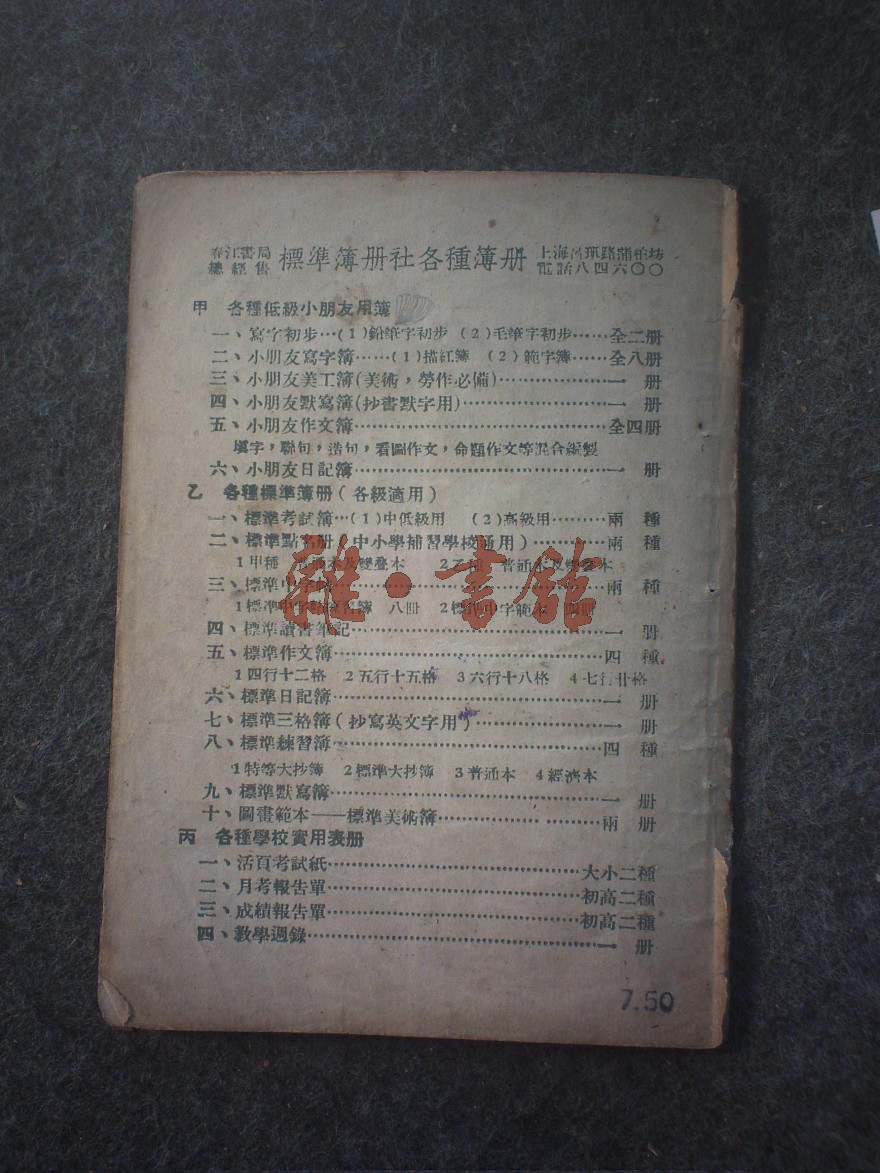 春江書局 總經售 標準簿册社各種簿册 上海呂班路蒲柏坊 電話八四六〇〇
甲 各種低級小朋友用簿
一、寫字初步…(1)鉛筆字初步 (2)毛筆字初步……全二册
二、小朋友寫字簿……(1)描紅簿 (2)範字簿……全八册
三、小朋友美工簿(美術，勞作必備)……一 册
四、小朋友默寫簿(抄書默字用)……一 册
五、小朋友作文簿……全四册
填字，聯句，造句，看圖作文，命題作文等混合編製
六、小朋友日記簿……一 册
乙 各種標準簿册(各級適用)
一、標準考試簿…(1)中低級用 (2)高級用……兩 種
二、標準點名册(中小學補習學校通用)……兩 種
1甲種 普通本及雙叠本 2乙種 普通本及雙叠本
三、標準中字……兩 種
1標準中字 習簿 八册 2標準中字範本 四册
四、標準讀書筆記……一 册
五、標準作文簿……四 種
1四行十二格 2五行十五格 3六行十八格 4七行廿格
六、標準日記簿……一 册
七、標準三格簿(抄寫英文字用)……一 册
八、標準練習簿……四 種
1特等大抄簿 2標準大抄簿 3普通本 4經濟本
九、標準默寫簿……一 册
十、圖畫範本——標準美術簿……兩 册
丙 各種學校實用表册
一、活頁考試紙……大小二種
二、月考報告單……初高二種
三、成績報告單……初高二種
四、教學週錄……一 册
7.50
雜·書館